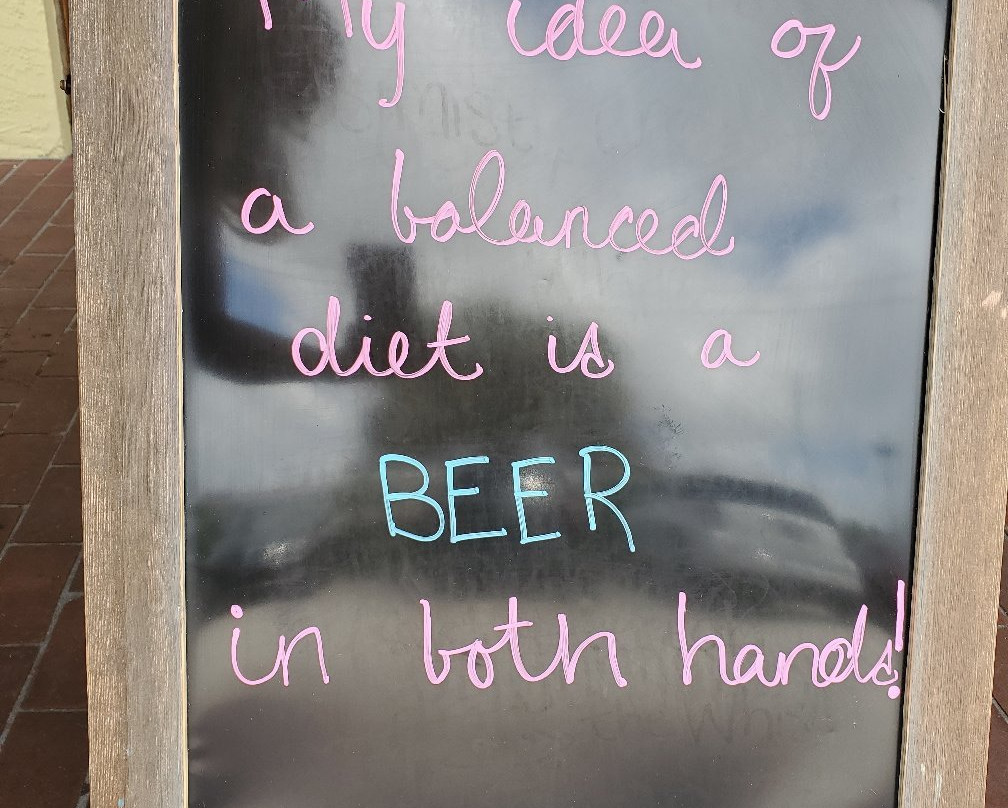 My idea of
a balanced
diet is a
BEER
in both hands!